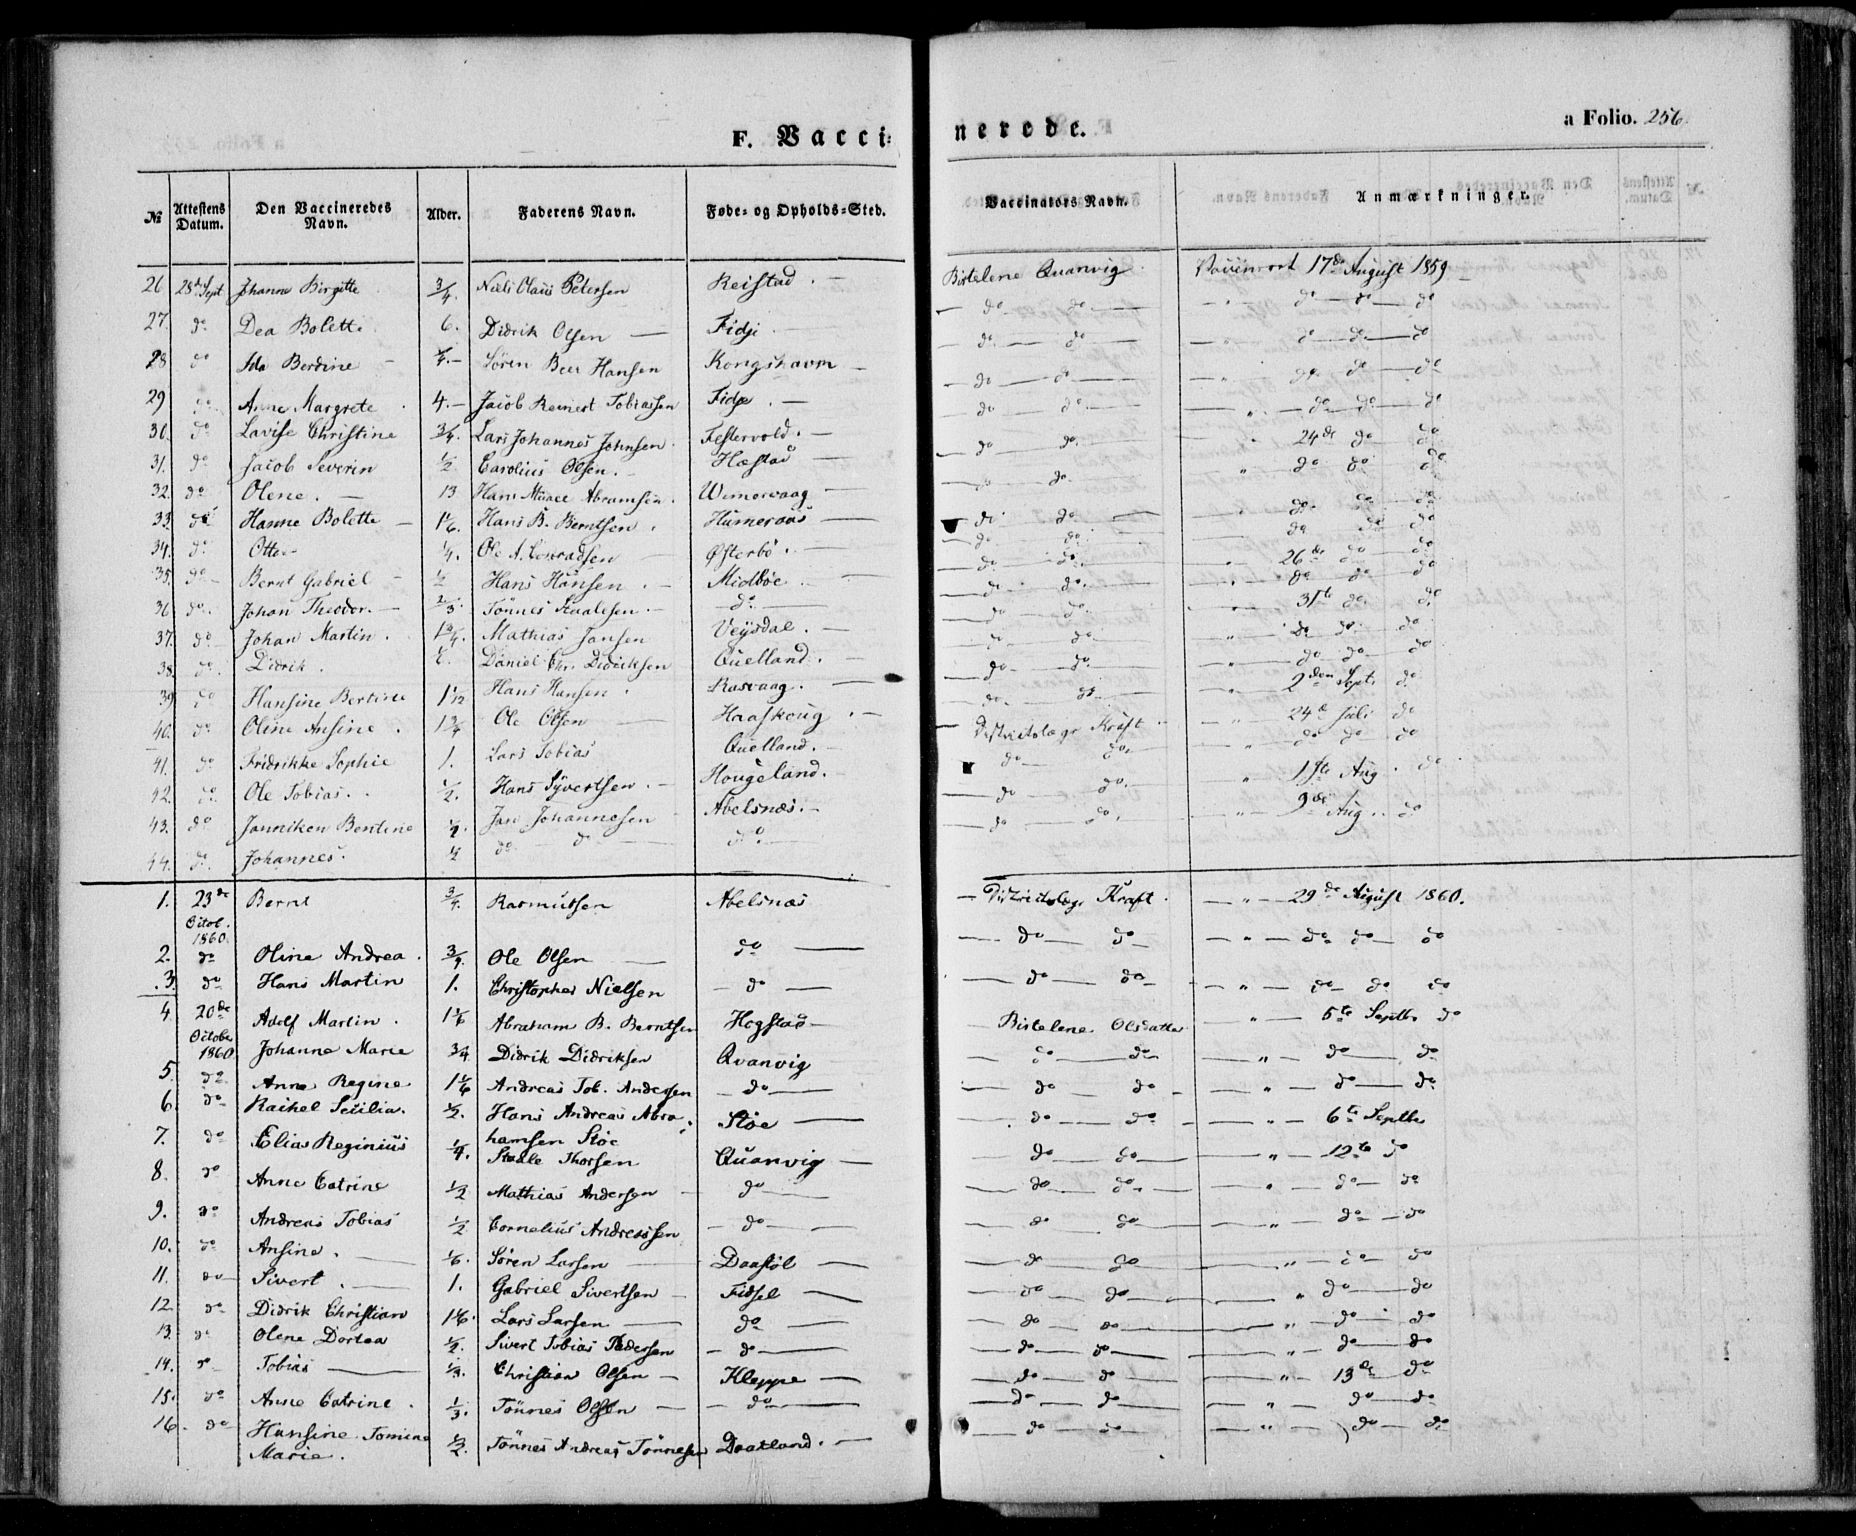 F. Vacci-nerede.
a Folio. 256.
№ | Attestens Datum. | Den Vaccineredes Navn. | Alder. | Faderens Navn. | Føde- og Opholds-Sted. | Vaccinators Navn. | Anmærkninger.
26 28de Sept Johanne Birgitte 3/4. Niels Claus Petersen Reistad. — Birtelene Quanvig 17de August 1859
27. do Dea Bolette 6. Didrik Olsen — Fidje — do — do — " — do — do — do
28 do Ida Berdine — Søren Beer Hansen Kongshavn — do — do — do — do — do
29 do Anne Margrete 4. — Jacob Reinert Tobiassen Fidje. — do — do — " — do — do — do
30. do Lavise Christine 3/4. Lars Johannes Johnsen. Festervold. — do — do — " — do — do — do
31. do Jacob Severin 1/2 Carolius Olsen. — Hæstad — do — do. " 24de do do
32. do Olene. — 13 Hans Abramsen. — do " do do do
33. do Hanne Bolette — 1 1/6. Hans B. Berntsen. — do — do — do do do
34. do Otter 1/4. Ole A. Conradsen — Østerbø. — do — do. do do do
35. do — Bernt Gabriel — 1/2 Hans Hansen. — Midbøe — do — do. 26de do do
36 do. Johan Theodor. — 2/3. Tönnes Staalesen. — do — do do. do do do
37. do Johan Martin. 1 3/4. Mathias Jansen Veisdal. — do do. 31te do. do
38. do. Didrik. Daniel Chr. Didriksen Quelland. — do do. " do do do
39 do Hansine Bertine 1 1/12 Hans Hansen. Rasvaag. — do — do. " do do do
40. do Oline Ansine. 1 3/4 Ole Olsen — Haaskoug. — do — do " 2den Sept. do
41. do Fridrikke Sophie 1. Lars Tobias Quelland. — Districtslæge Kraft. " 24de Juli do
42. do Ole Tobias. 1/2. Hans Syvertsen. — Hougeland. — do — do. " do do do
43. do Janniken Bentine 1/2. Jan Johannesen Abelsnæs. — do — do. " 1ste Aug. do
44. do. Johannes. 1/2 do — do — do — do — do. " 9de Aug. do
1. 23de Octob. 1860. Bernt 3/4. Rasmussen Abelsnæs — Districtslæge Kraft. — " — 29de August 1860.
2. do Oline Andrea. 3/4 Ole Olsen — do — — do — do — " — do do — do
3. do Hans Martin 1. Christopher Nielsen — do — — do — do — " — do — do do
4 20de October 1860 Adolf Martin. 1 1/6 Abraham B. Berntsen Hogstad — Birtelene Olsdatter — " — 5te Septbr do
Johanne Marie 3/4 Didrik Didriksen Qvanvig — do — do — " — do — do
5. do Anne Regine 1 1/6 Andreas Tob. Andersen — do — — do do — " — do — do
6. do Rachel Secilia. 1/2. Hans Andreas Abra-
hamsen Støe Støe — — do — do — " — 6te Septbr
7. do Elias Reginius 1/4. Staale Thorsen Quanvig — — do — do — " — 12te do
8. do Anne Catrine 1/2 Mathias Andersen — do — — do do — " — do — do
9. do Andreas Tobias 1/2 Cornelius Andreassen — do — — do do — " — do — do
10. do Ansine. — 1/6. Søren Larsen — Daastøl — — do do — " — do — do
11. do — Sivert. — 1. Gabriel Sivertsen — Fidsel — — do do — " do — do
12 do Didrik Christian 1 1/6. Lars Larsen — do — — do — do — " — do — do
13. do Olene Dortea 1/2. Sivert Tobias Pedersen — do — — do — do — " — do — do
14. do Tobias — 1/3. Christian Olsen — Kleppe — — do — do — " — 13de do
15. do Anne Catrine. 1/3. Tönnes Olsen — — do — — do — do — " — do — do
16. do Hansine Tomine
Marie. 1/2. Tönnes Andreas Tönnesen Daatland. — — do — do — " — do — do